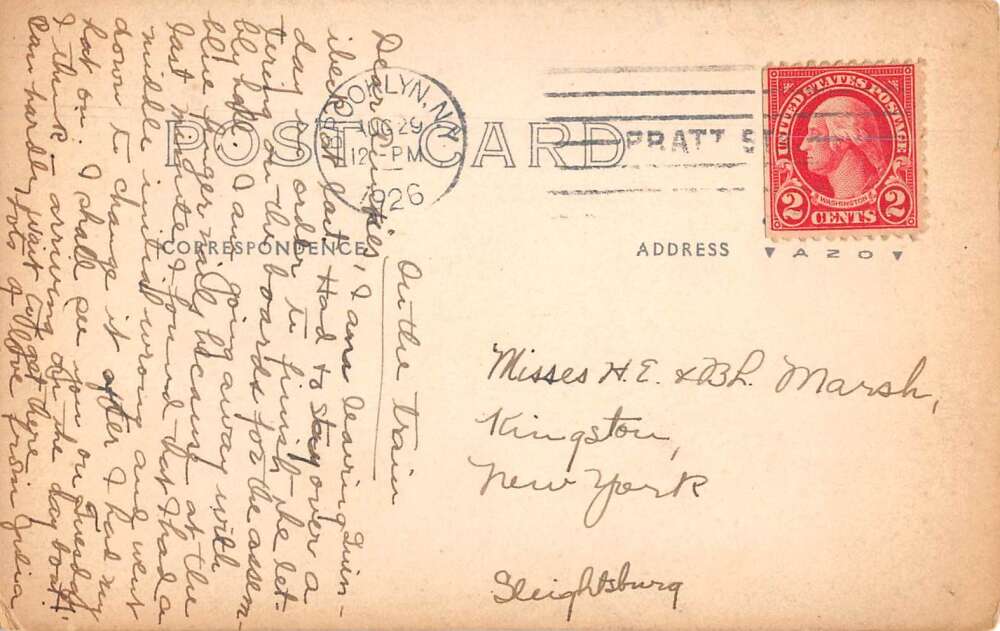 POST CARD
BROOKLYN, N.Y.
AUG 29
12-PM
1926
PRATT
UNITED STATES POSTAGE
WASHINGTON
2 CENTS 2
CORRESPONDENCE
ADDRESS
A 2 0
On the train
Dear I am leaving Quin-
ibeck at last. Had to stay over a
day in order to finish the let-
tering on the boards for the assem-
bly hall. I am going away with
blue finger nails because at the
last minute I found that I had a
middle initial wrong and went
down to change it after I had my
hat on. I shall see you on Tuesday
I think arriving on the day boat.
Can hardly wait to get there
Lots of love from Julia
Misses H.E. & B.L. Marsh,
Kingston,
New York
Sleightsburg